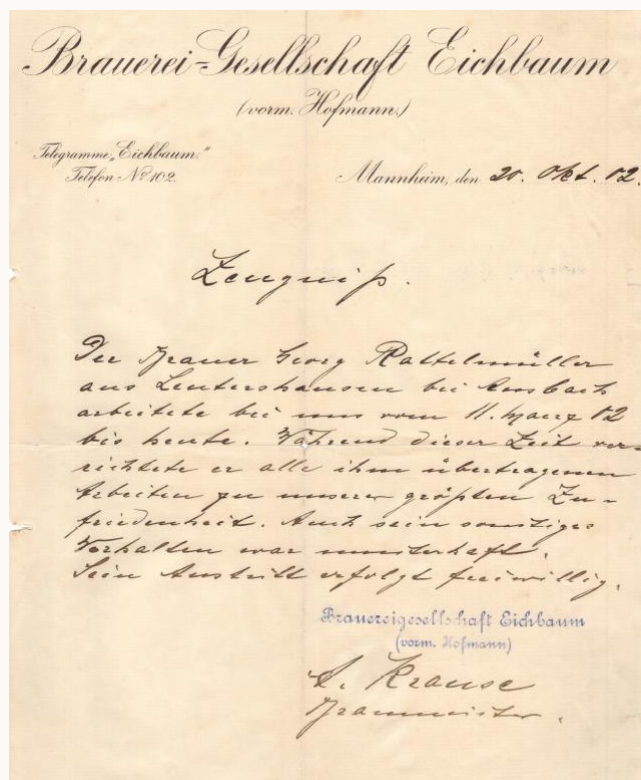 Brauerei-Gesellschaft Eichbaum
(vorm. Hofmann.)
Telegramme „Eichbaum."
Telefon No 102.
Mannheim, den 20. Okt. 02.
Zeugniß.
Der Brauer Georg Rattelmüller
aus Leutershausen bei Ansbach
arbeitete bei uns vom 11. März 02
bis heute. Während dieser Zeit ver-
richtete er alle ihm übertragenen
Arbeiten zu unserer größten Zu-
friedenheit. Auch sein sonstiges
Verhalten war musterhaft.
Sein Austritt erfolgt freiwillig.
Brauereigesellschaft Eichbaum
(vorm. Hofmann)
A. Krause
Braumeister.